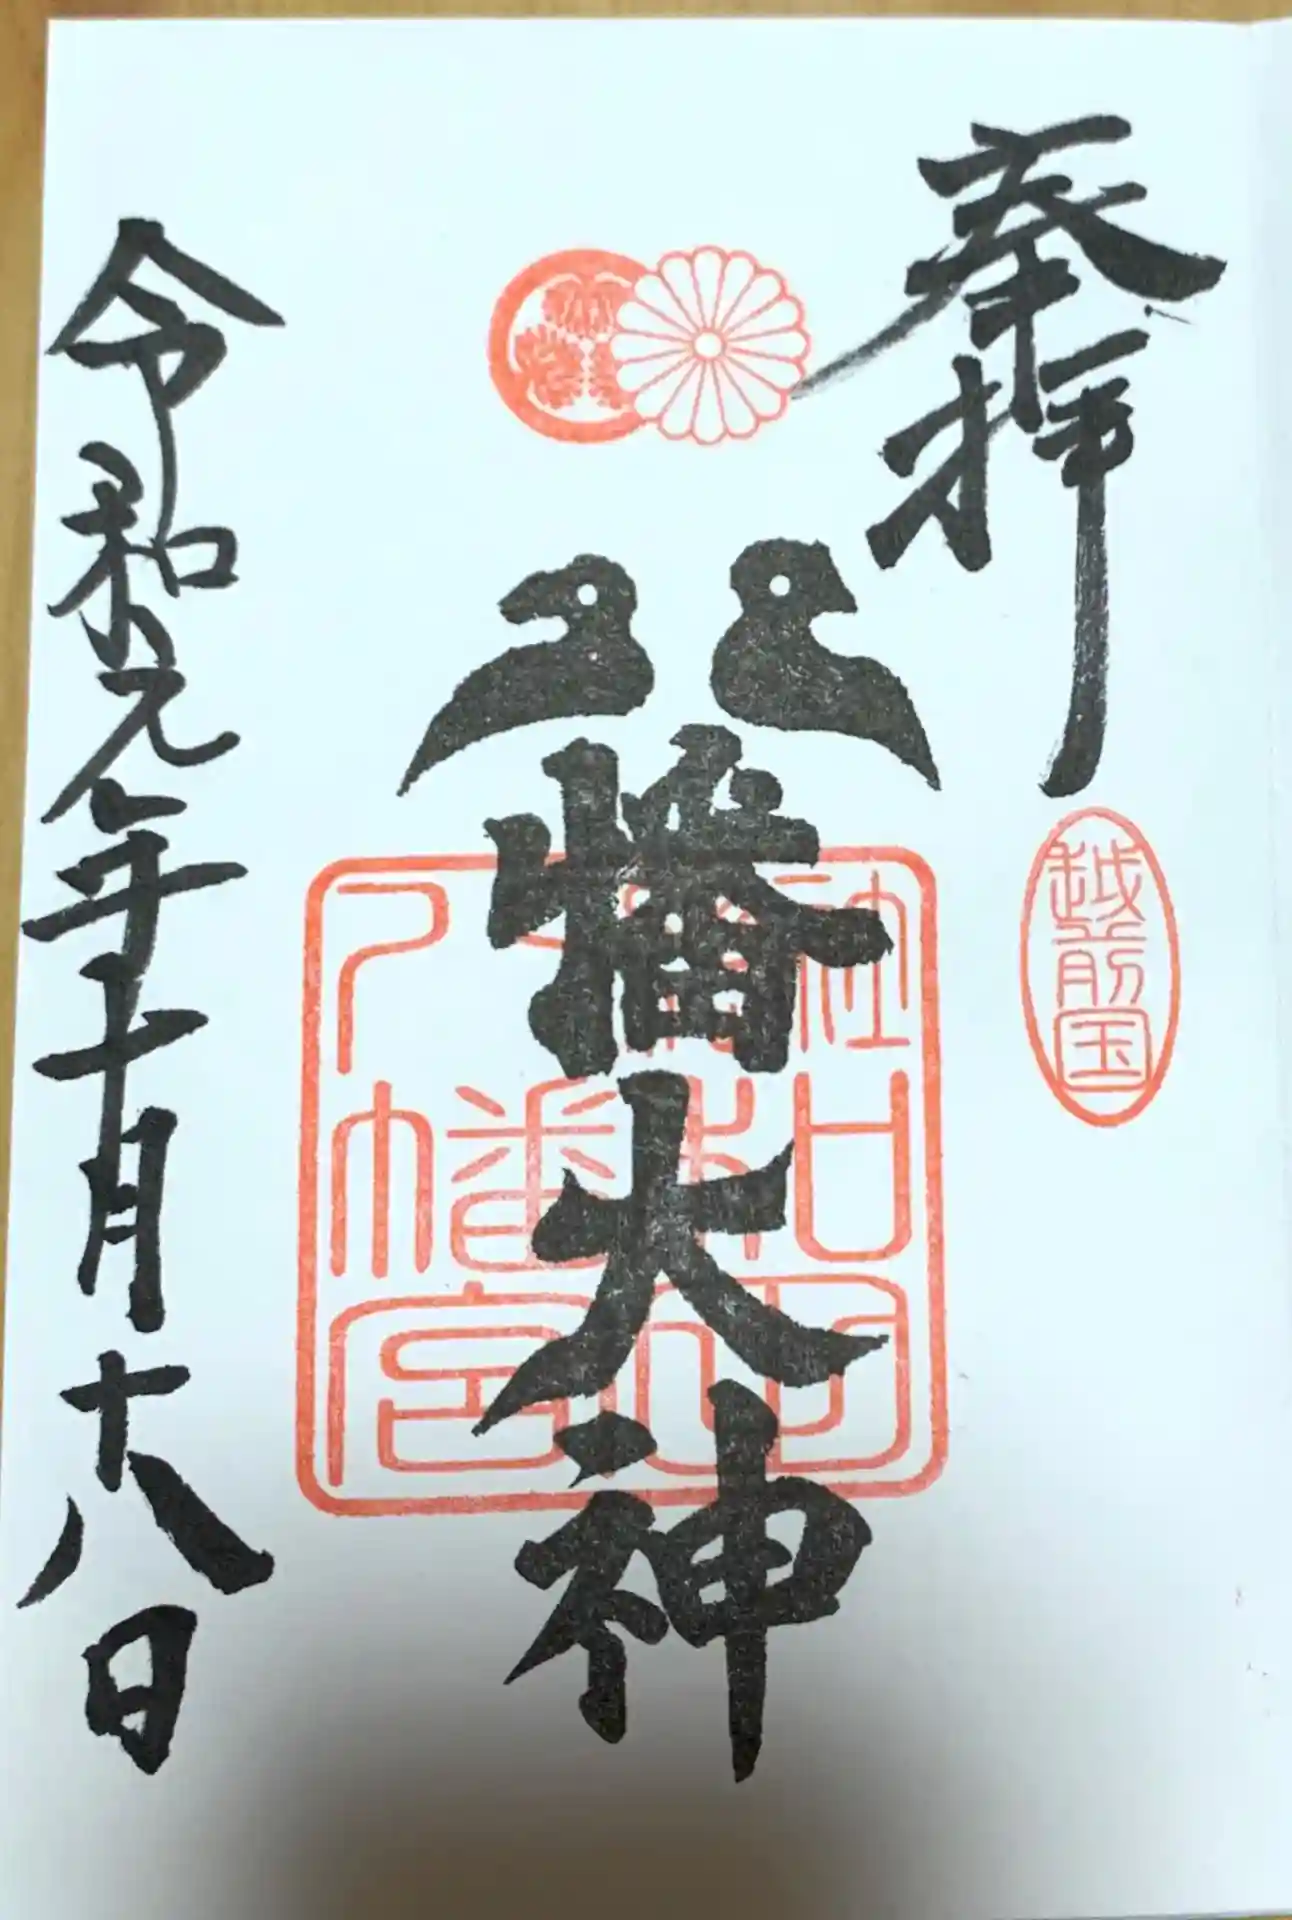 奉拝
越前国
八幡大神
和田
八幡宮
令和元年十月十八日